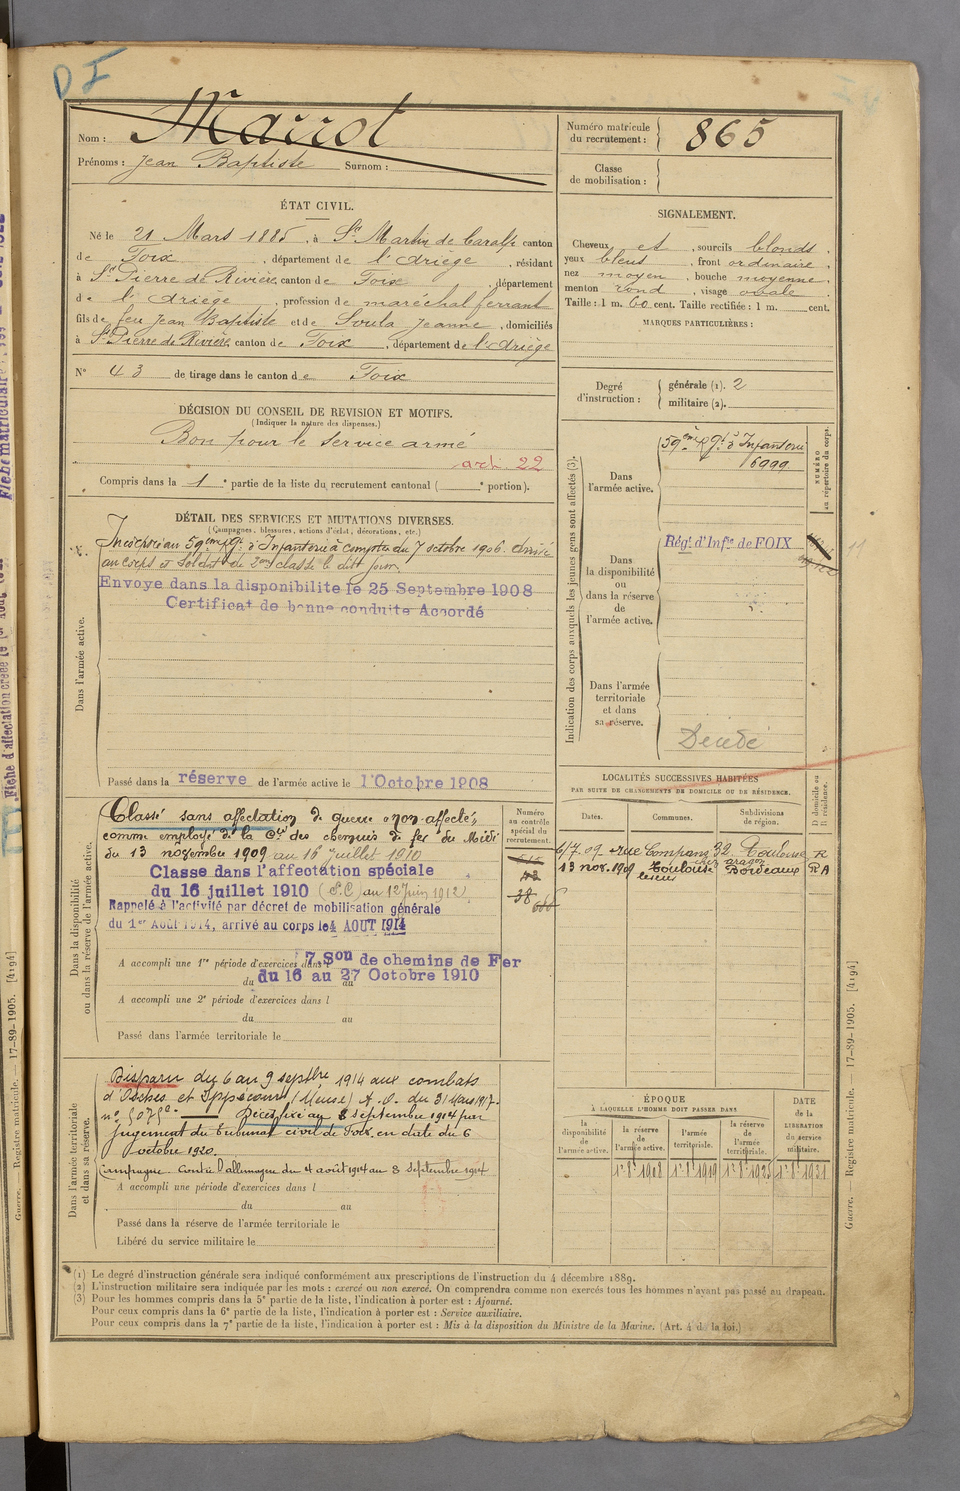 D I
Nom : Marrot
Prénoms : Jean Baptiste Surnom :
Numéro matricule du recrutement : 865
Classe de mobilisation :
ÉTAT CIVIL.
Né le 21 Mars 1885, à St Martin de Caralp canton
de Foix, département de l'Ariège, résidant
à St Pierre de Rivière, canton de Foix, département
de l'Ariège, profession de maréchal ferrant
fils de feu Jean Baptiste et de Soula Jeanne, domiciliés
à St Pierre de Rivière, canton de Foix, département de l'Ariège
N° 43 de tirage dans le canton de Foix
SIGNALEMENT.
Cheveux et, sourcils blonds,
yeux bleus, front ordinaire,
nez moyen, bouche moyenne,
menton rond, visage ovale
Taille : 1 m. 60 cent. Taille rectifiée : 1 m. cent.
MARQUES PARTICULIÈRES :
Degré d'instruction :
générale (1). 2
militaire (2).
DÉCISION DU CONSEIL DE REVISION ET MOTIFS.
(Indiquer la nature des dispenses.)
Bon pour le service armé
art. 22
Compris dans la 1e partie de la liste du recrutement cantonal ( e portion).
DÉTAIL DES SERVICES ET MUTATIONS DIVERSES.
(Campagnes, blessures, actions d'éclat, décorations, etc.)
Dans l'armée active.
Incorporé au 59ème Rgt d'Infanterie à compter du 7 octobre 1906. Arrivé
au corps et soldat de 2ème classe le dit jour
Envoyé dans la disponibilité le 25 Septembre 1908
Certificat de bonne conduite Accordé
Passé dans la réserve de l'armée active le 1 Octobre 1908
Indication des corps auxquels les jeunes gens sont affectés (3).
NUMÉRO au répertoire du corps.
Dans l'armée active.
59ème Rgt d'Infanterie
6999
Dans la disponibilité ou dans la réserve de l'armée active.
Régt d'Infie de FOIX
Dans l'armée territoriale et dans sa réserve.
Décédé
Dans la disponibilité ou dans la réserve de l'armée active.
Classé sans affectation de guerre "non affecté",
comme employé de la Cie des chemins de fer du Midi
du 13 novembre 1909 au 16 juillet 1910
Classe dans l'affectation spéciale
du 16 juillet 1910 (S.C) au 12 Juin 1912
Rappelé à l'activité par décret de mobilisation générale
du 1er Août 1914, arrivé au corps le 4 AOUT 1914
A accompli une 1re période d'exercices dans l 7 Son de chemins de Fer
du 16 au 27 Octobre 1910
A accompli une 2e période d'exercices dans l
du au
Passé dans l'armée territoriale le
Numéro au contrôle spécial du recrutement.
38
LOCALITÉS SUCCESSIVES HABITÉES
PAR SUITE DE CHANGEMENTS DE DOMICILE OU DE RÉSIDENCE.
Dates. Communes. Subdivisions de région. D domicile ou R résidence.
6/7.09 rue Compans 32 Toulouse R
13 nov. 1909 Toulouse Bordeaux RA
Dans l'armée territoriale et dans sa réserve.
Disparu du 6 au 9 septbre 1914 aux combats
d'Osches et Ippécourt (Meuse) A.O. du 31 Mars 1917.
Décès fixé au 8 septembre 1914 par
jugement du tribunal civil de Foix en date du 6
octobre 1920.
Campagne contre l'allemagne du 4 août 1914 au 8 septembre 1914
A accompli une période d'exercices dans l
du au
Passé dans la réserve de l'armée territoriale le
Libéré du service militaire le
ÉPOQUE
À LAQUELLE L'HOMME DOIT PASSER DANS
la disponibilité de l'armée active. la réserve de l'armée active. l'armée territoriale. la réserve de l'armée territoriale.
DATE de la LIBÉRATION du service militaire.
(1) Le degré d'instruction générale sera indiqué conformément aux prescriptions de l'instruction du 4 décembre 1889.
(2) L'instruction militaire sera indiquée par les mots : exercé ou non exercé. On comprendra comme non exercés tous les hommes n'ayant pas passé au drapeau.
(3) Pour les hommes compris dans la 5e partie de la liste, l'indication à porter est : Ajourné.
Pour ceux compris dans la 6e partie de la liste, l'indication à porter est : Service auxiliaire.
Pour ceux compris dans la 7e partie de la liste, l'indication à porter est : Mis à la disposition du Ministre de la Marine. (Art. 4 de la loi.)
Guerre. — Registre matricule. — 17-89-1905. [4194]
Guerre. — Registre matricule. — 17-89-1905. [4194]